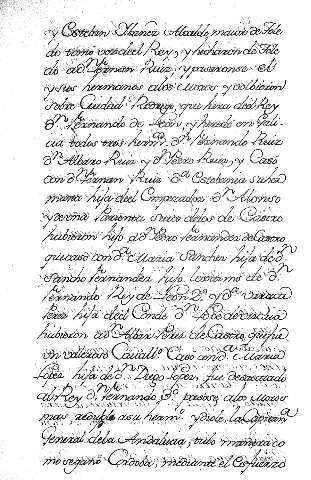 y Esteban Ybañez Alcalde maior de Tole
do tomó voz del Rey, y echaron de Tole
do a Dⁿ Fernan Ruiz, y pasaronse el
y sus hermanos a los Moros y volbieron
sobre Ciudad Rodrigo, que hera del Rey
Dⁿ Fernando de Leon, y heredó en Gali-
cia todos tres hermˢ Dⁿ Fernando Ruiz
Dⁿ Albaro Ruiz y Dⁿ Pedro Ruiz, y Casó
con Dⁿ Fernan Ruiz Dª Estebania su her
mana hija del Emperador Dⁿ Alonso
y de una Parienta suia de los de Castro
hubieron hijo a Dⁿ Pedro Fernandez de Castro
que casó con Dª Maria Sanchez hija de Dⁿ
Sancho Fernandez hijo lexitimo de Dⁿ
Fernando Rey de Leon 2º y Dª Urraca
Perez hija del Conde Dⁿ Lope de Vizcaia
hubieron a Dⁿ Albar Perez de Castro, que fue
un valeroso Cavallº Caso con Dª Maria
Lopez hija de Dⁿ Diego Lopez, fue
al Rey Dⁿ Fernando 3º pasose a los Moros
mas a su hermº y diole la Capitanª
General de la Andalucia, tubo manera co
mo se ganó Cordoba, mediante el esfuerzo